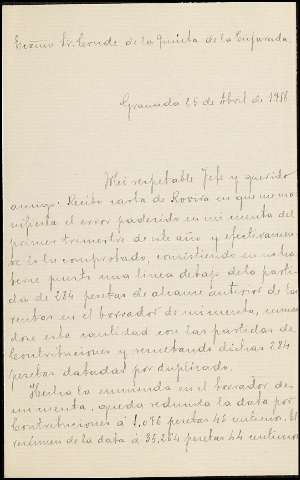 Excmo Sr. Conde de la Quinta de la Enjarada
Granada 25 de Abril de 1916
Mi respetable Jefe y querido
amigo: Recibo carta de Rovira en que me ma
nifiesta el error padecido en mi cuenta del
primer trimestre de este año y efectivamen
te lo he comprobado, consistiendo en no ha
berse puesto una linea debajo de la parti
da de 284 pesetas de alcance anterior de las
rentas en el borrador de mi cuenta,
dose esta cantidad con las partidas de
Contribuciones y resultando dichas 284
pesetas datadas por duplicado.
Hecha la enmienda en el borrador de
mi cuenta, queda reducida la data por
Contribuciones á 1,086 pesetas 46 centimos. El
resúmen de la data á 35,284 pesetas 44 centimos